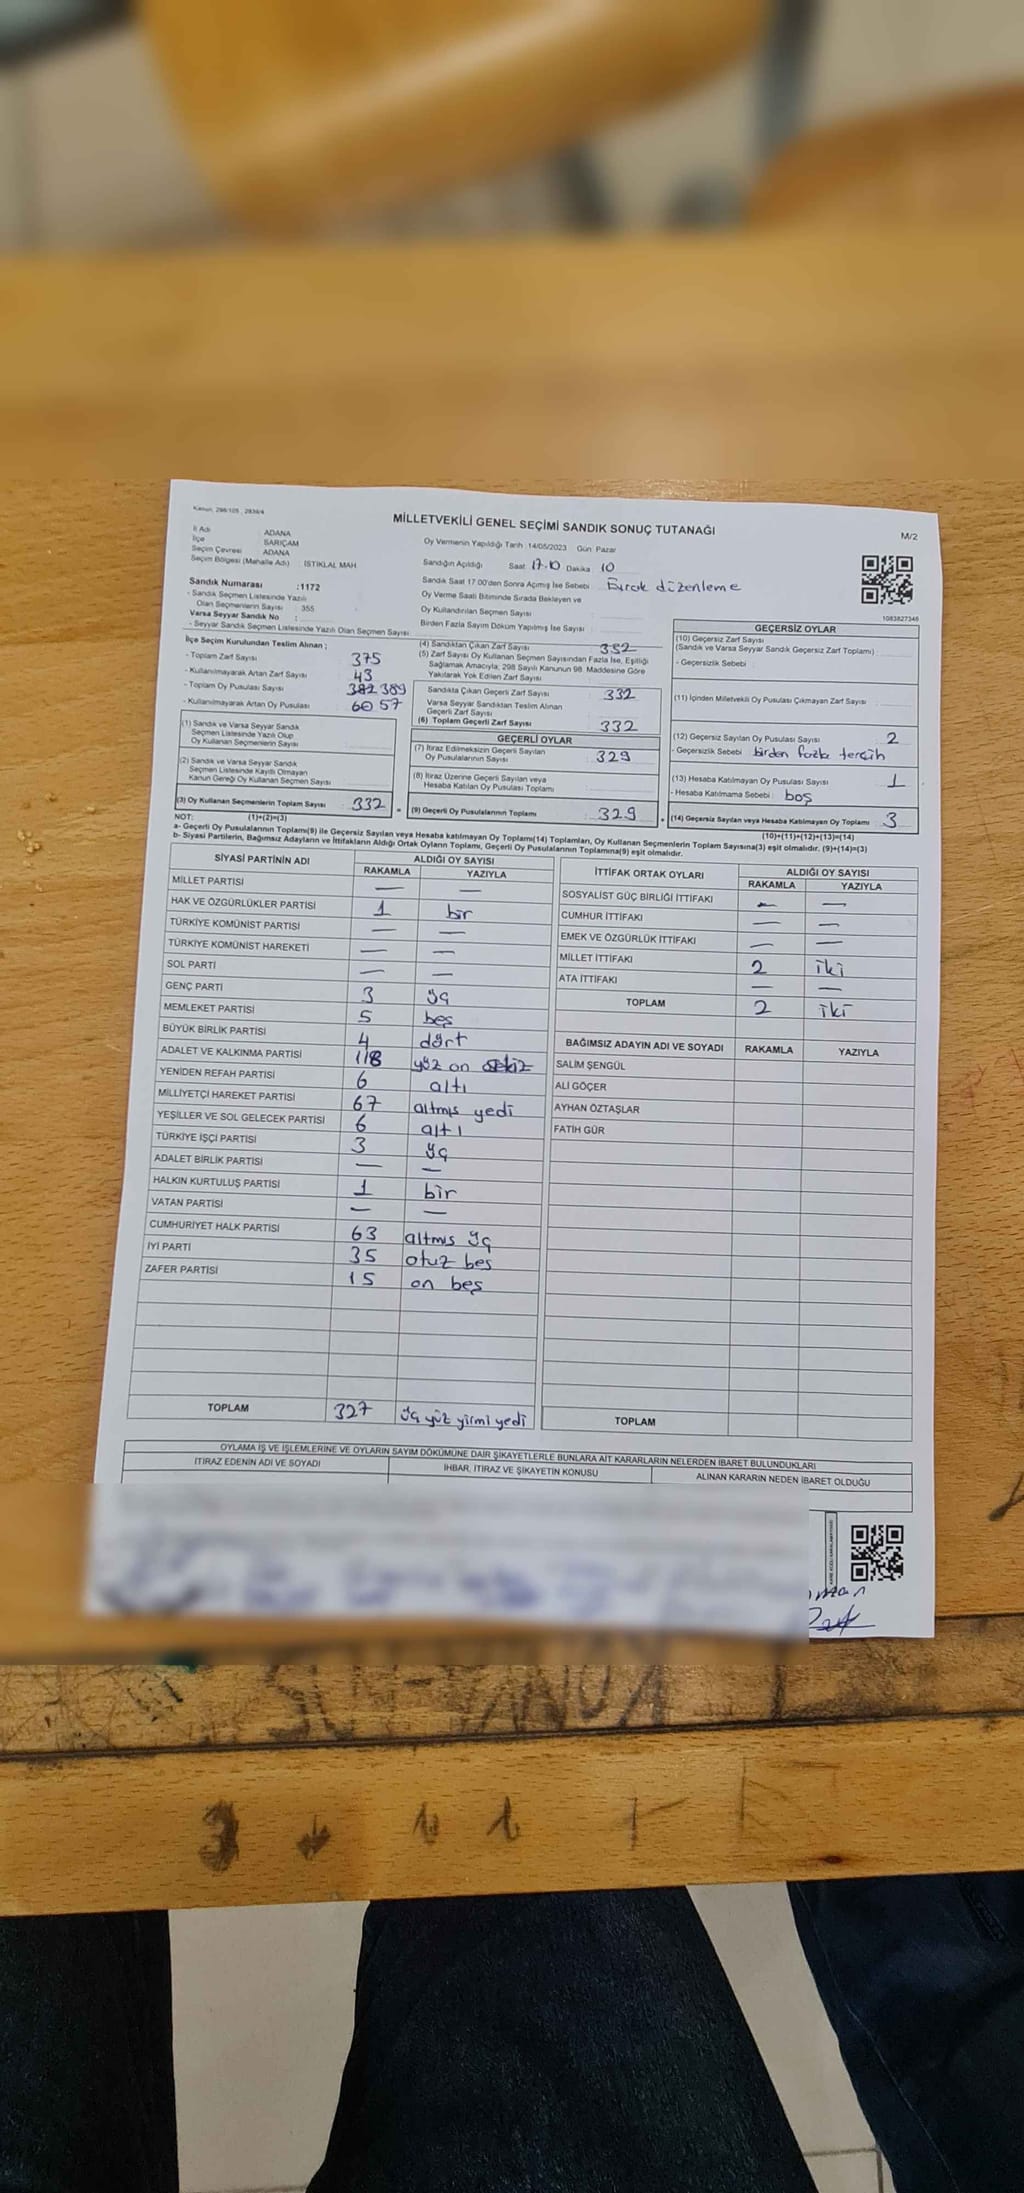 Kanun: 298/105 , 2839/4
MİLLETVEKİLİ GENEL SEÇİMİ SANDIK SONUÇ TUTANAĞI
M/2
İl Adı : ADANA
İlçe : SARIÇAM
Seçim Çevresi : ADANA
Seçim Bölgesi (Mahalle Adı) : İSTİKLAL MAH.
Oy Vermenin Yapıldığı Tarih :14/05/2023 Gün: Pazar
Sandığın Açıldığı Saat 17.10 Dakika 10
Sandık Saat 17:00'den Sonra Açılmış İse Sebebi : Evrak düzenleme
Oy Verme Saati Bitiminde Sırada Bekleyen ve
Oy Kullandırılan Seçmen Sayısı :
Birden Fazla Sayım Döküm Yapılmış İse Sayısı :
1083827345
Sandık Numarası :1172
- Sandık Seçmen Listesinde Yazılı
Olan Seçmenlerin Sayısı : 355
Varsa Seyyar Sandık No :
- Seyyar Sandık Seçmen Listesinde Yazılı Olan Seçmen Sayısı:
İlçe Seçim Kurulundan Teslim Alınan ;
- Toplam Zarf Sayısı : 375
- Kullanılmayarak Artan Zarf Sayısı : 43
- Toplam Oy Pusulası Sayısı : 382 389
- Kullanılmayarak Artan Oy Pusulası : 60 57
(1) Sandık ve Varsa Seyyar Sandık
Seçmen Listesinde Yazılı Olup
Oy Kullanan Seçmenlerin Sayısı :
(2) Sandık ve Varsa Seyyar Sandık
Seçmen Listesinde Kayıtlı Olmayan
Kanun Gereği Oy Kullanan Seçmen Sayısı :
(3) Oy Kullanan Seçmenlerin Toplam Sayısı : 332
(4) Sandıktan Çıkan Zarf Sayısı : 332
(5) Zarf Sayısı Oy Kullanan Seçmen Sayısından Fazla İse, Eşitliği
Sağlamak Amacıyla; 298 Sayılı Kanunun 98. Maddesine Göre
Yakılarak Yok Edilen Zarf Sayısı :
Sandıkta Çıkan Geçerli Zarf Sayısı : 332
Varsa Seyyar Sandıktan Teslim Alınan
Geçerli Zarf Sayısı :
(6) Toplam Geçerli Zarf Sayısı : 332
GEÇERLİ OYLAR
(7) İtiraz Edilmeksizin Geçerli Sayılan
Oy Pusulalarının Sayısı : 329
(8) İtiraz Üzerine Geçerli Sayılan veya
Hesaba Katılan Oy Pusulası Toplamı :
(9) Geçerli Oy Pusulalarının Toplamı : 329
GEÇERSİZ OYLAR
(10) Geçersiz Zarf Sayısı
(Sandık ve Varsa Seyyar Sandık Geçersiz Zarf Toplamı) :
- Geçersizlik Sebebi :
(11) İçinden Milletvekili Oy Pusulası Çıkmayan Zarf Sayısı :
(12) Geçersiz Sayılan Oy Pusulası Sayısı : 2
- Geçersizlik Sebebi : birden fazla tercih
(13) Hesaba Katılmayan Oy Pusulası Sayısı : 1
- Hesaba Katılmama Sebebi : boş
(14) Geçersiz Sayılan veya Hesaba Katılmayan Oy Toplamı : 3
NOT: (1)+(2)=(3)
(10)+(11)+(12)+(13)=(14)
a- Geçerli Oy Pusulalarının Toplamı(9) ile Geçersiz Sayılan veya Hesaba katılmayan Oy Toplamı(14) Toplamları, Oy Kullanan Seçmenlerin Toplam Sayısına(3) eşit olmalıdır. (9)+(14)=(3)
b- Siyasi Partilerin, Bağımsız Adayların ve İttifakların Aldığı Ortak Oyların Toplamı, Geçerli Oy Pusulalarının Toplamına(9) eşit olmalıdır.
SİYASİ PARTİNİN ADI ALDIĞI OY SAYISI
RAKAMLA YAZIYLA
MİLLET PARTİSİ — —
HAK VE ÖZGÜRLÜKLER PARTİSİ 1 bir
TÜRKİYE KOMÜNİST PARTİSİ — —
TÜRKİYE KOMÜNİST HAREKETİ — —
SOL PARTİ — —
GENÇ PARTİ 3 üç
MEMLEKET PARTİSİ 5 beş
BÜYÜK BİRLİK PARTİSİ 4 dört
ADALET VE KALKINMA PARTİSİ 118 yüz on sekiz
YENİDEN REFAH PARTİSİ 6 altı
MİLLİYETÇİ HAREKET PARTİSİ 67 altmış yedi
YEŞİLLER VE SOL GELECEK PARTİSİ 6 altı
TÜRKİYE İŞÇİ PARTİSİ 3 üç
ADALET BİRLİK PARTİSİ — —
HALKIN KURTULUŞ PARTİSİ 1 bir
VATAN PARTİSİ — —
CUMHURİYET HALK PARTİSİ 63 altmış üç
İYİ PARTİ 35 otuz beş
ZAFER PARTİSİ 15 on beş
TOPLAM 327 üç yüz yirmi yedi
İTTİFAK ORTAK OYLARI ALDIĞI OY SAYISI
RAKAMLA YAZIYLA
SOSYALİST GÜÇ BİRLİĞİ İTTİFAKI — —
CUMHUR İTTİFAKI — —
EMEK VE ÖZGÜRLÜK İTTİFAKI — —
MİLLET İTTİFAKI 2 iki
ATA İTTİFAKI — —
TOPLAM 2 iki
BAĞIMSIZ ADAYIN ADI VE SOYADI RAKAMLA YAZIYLA
SALİM ŞENGÜL
ALİ GÖÇER
AYHAN ÖZTAŞLAR
FATİH GÜR
TOPLAM
OYLAMA İŞ VE İŞLEMLERİNE VE OYLARIN SAYIM DÖKÜMÜNE DAİR ŞİKAYETLERLE BUNLARA AİT KARARLARIN NELERDEN İBARET BULUNDUKLARI
İTİRAZ EDENİN ADI VE SOYADI İHBAR, İTİRAZ VE ŞİKAYETİN KONUSU ALINAN KARARIN NEDEN İBARET OLDUĞU